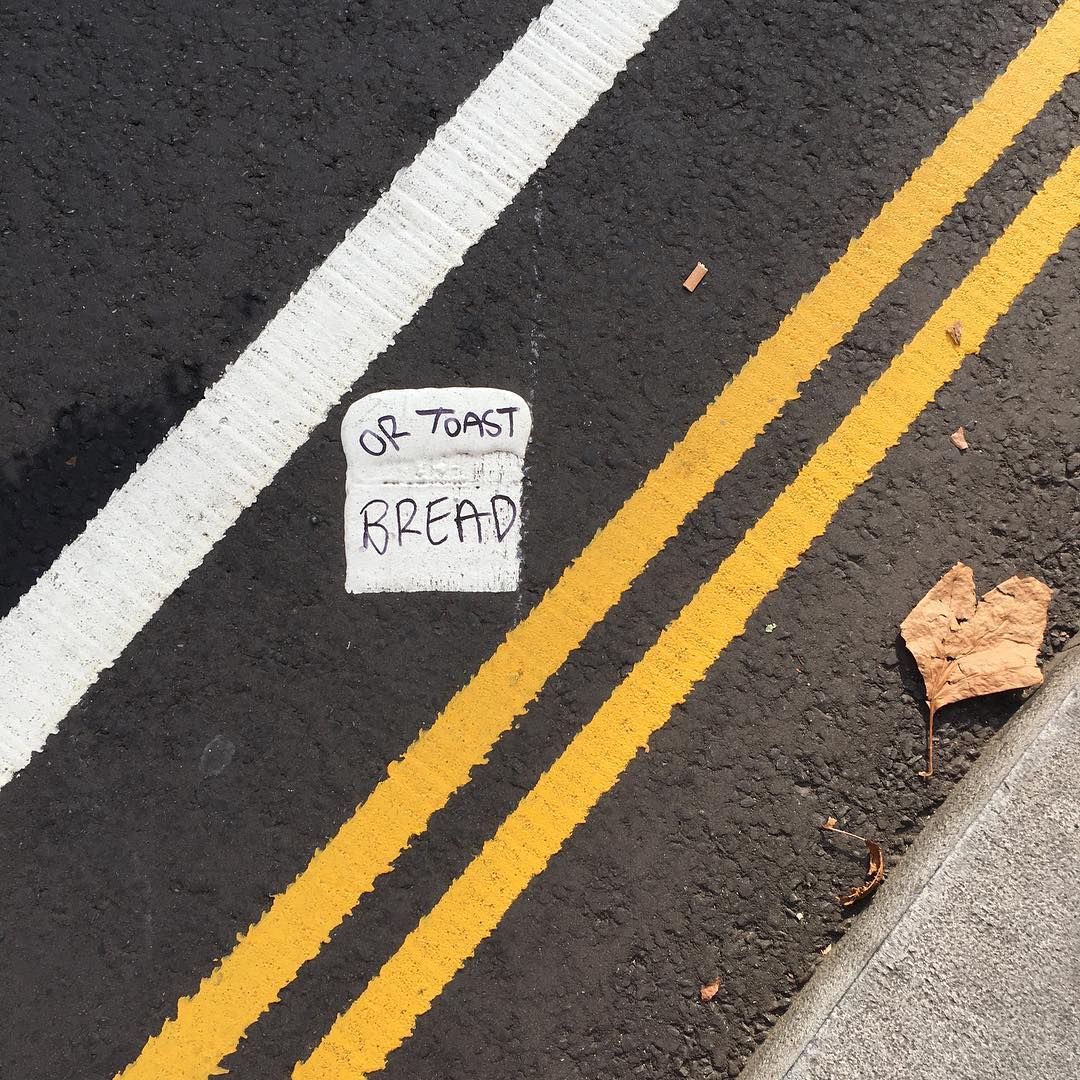 OR TOAST
BREAD